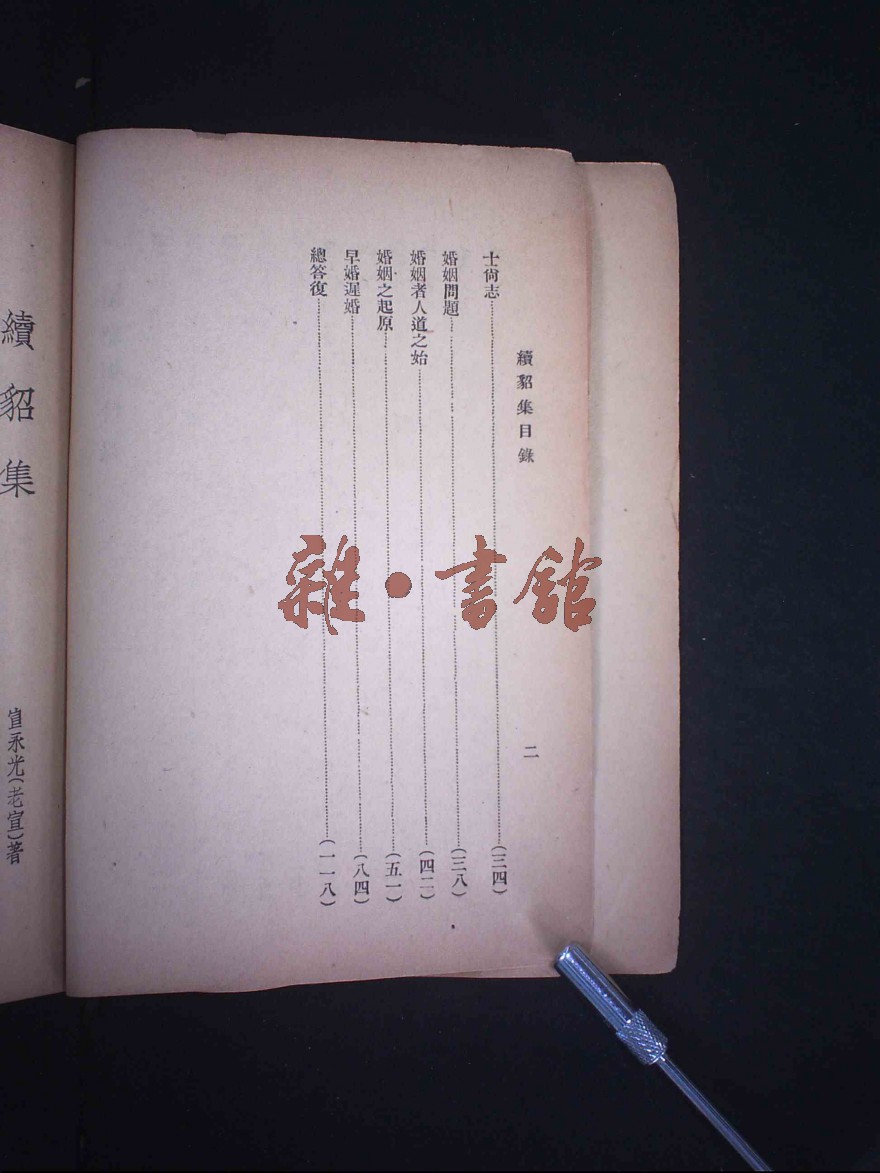 續貂集目錄
二
士尙志……(三四)
婚姻問題……(三八)
婚姻者人道之始……(四二)
婚姻之起原……(五一)
早婚遲婚……(八四)
總答復……(一一八)
續貂集
宣永光(老宣)著
雜·書館